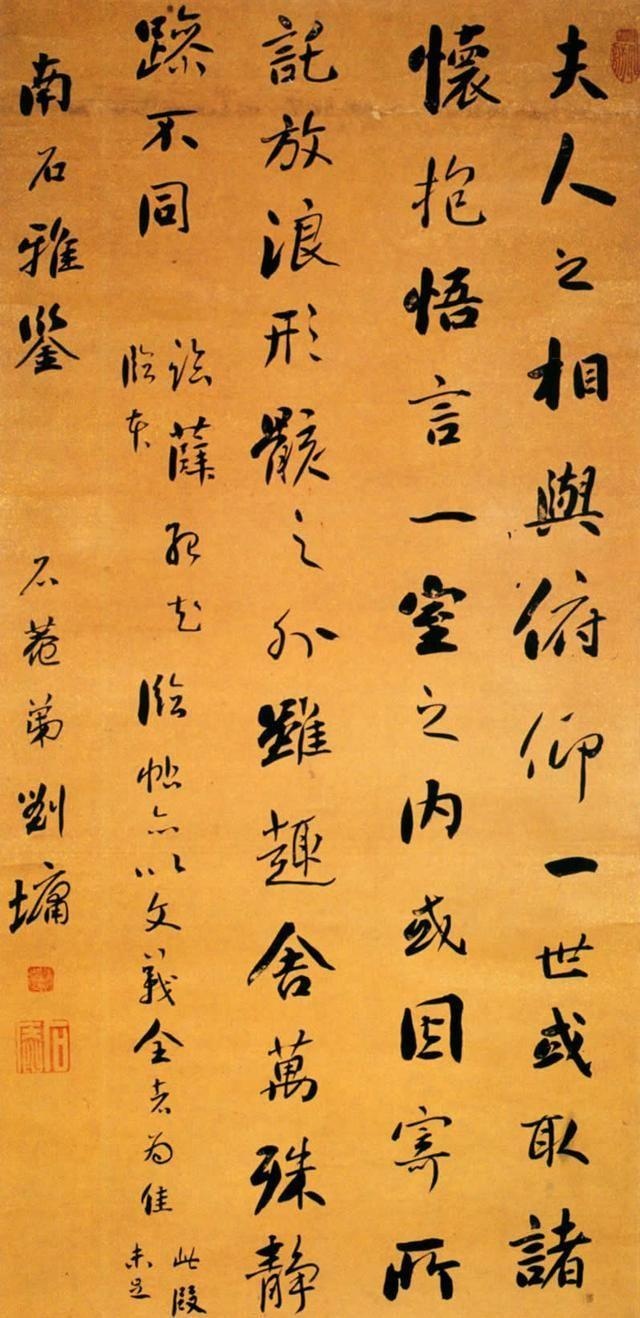 夫人之相與俯仰一世或取諸
懷抱悟言一室之内或因寄所
託放浪形骸之外雖趣舍萬殊静
躁不同
臨本
臨帖亦以文義全者為佳
此段
未足
南石雅鑒
石菴弟劉墉